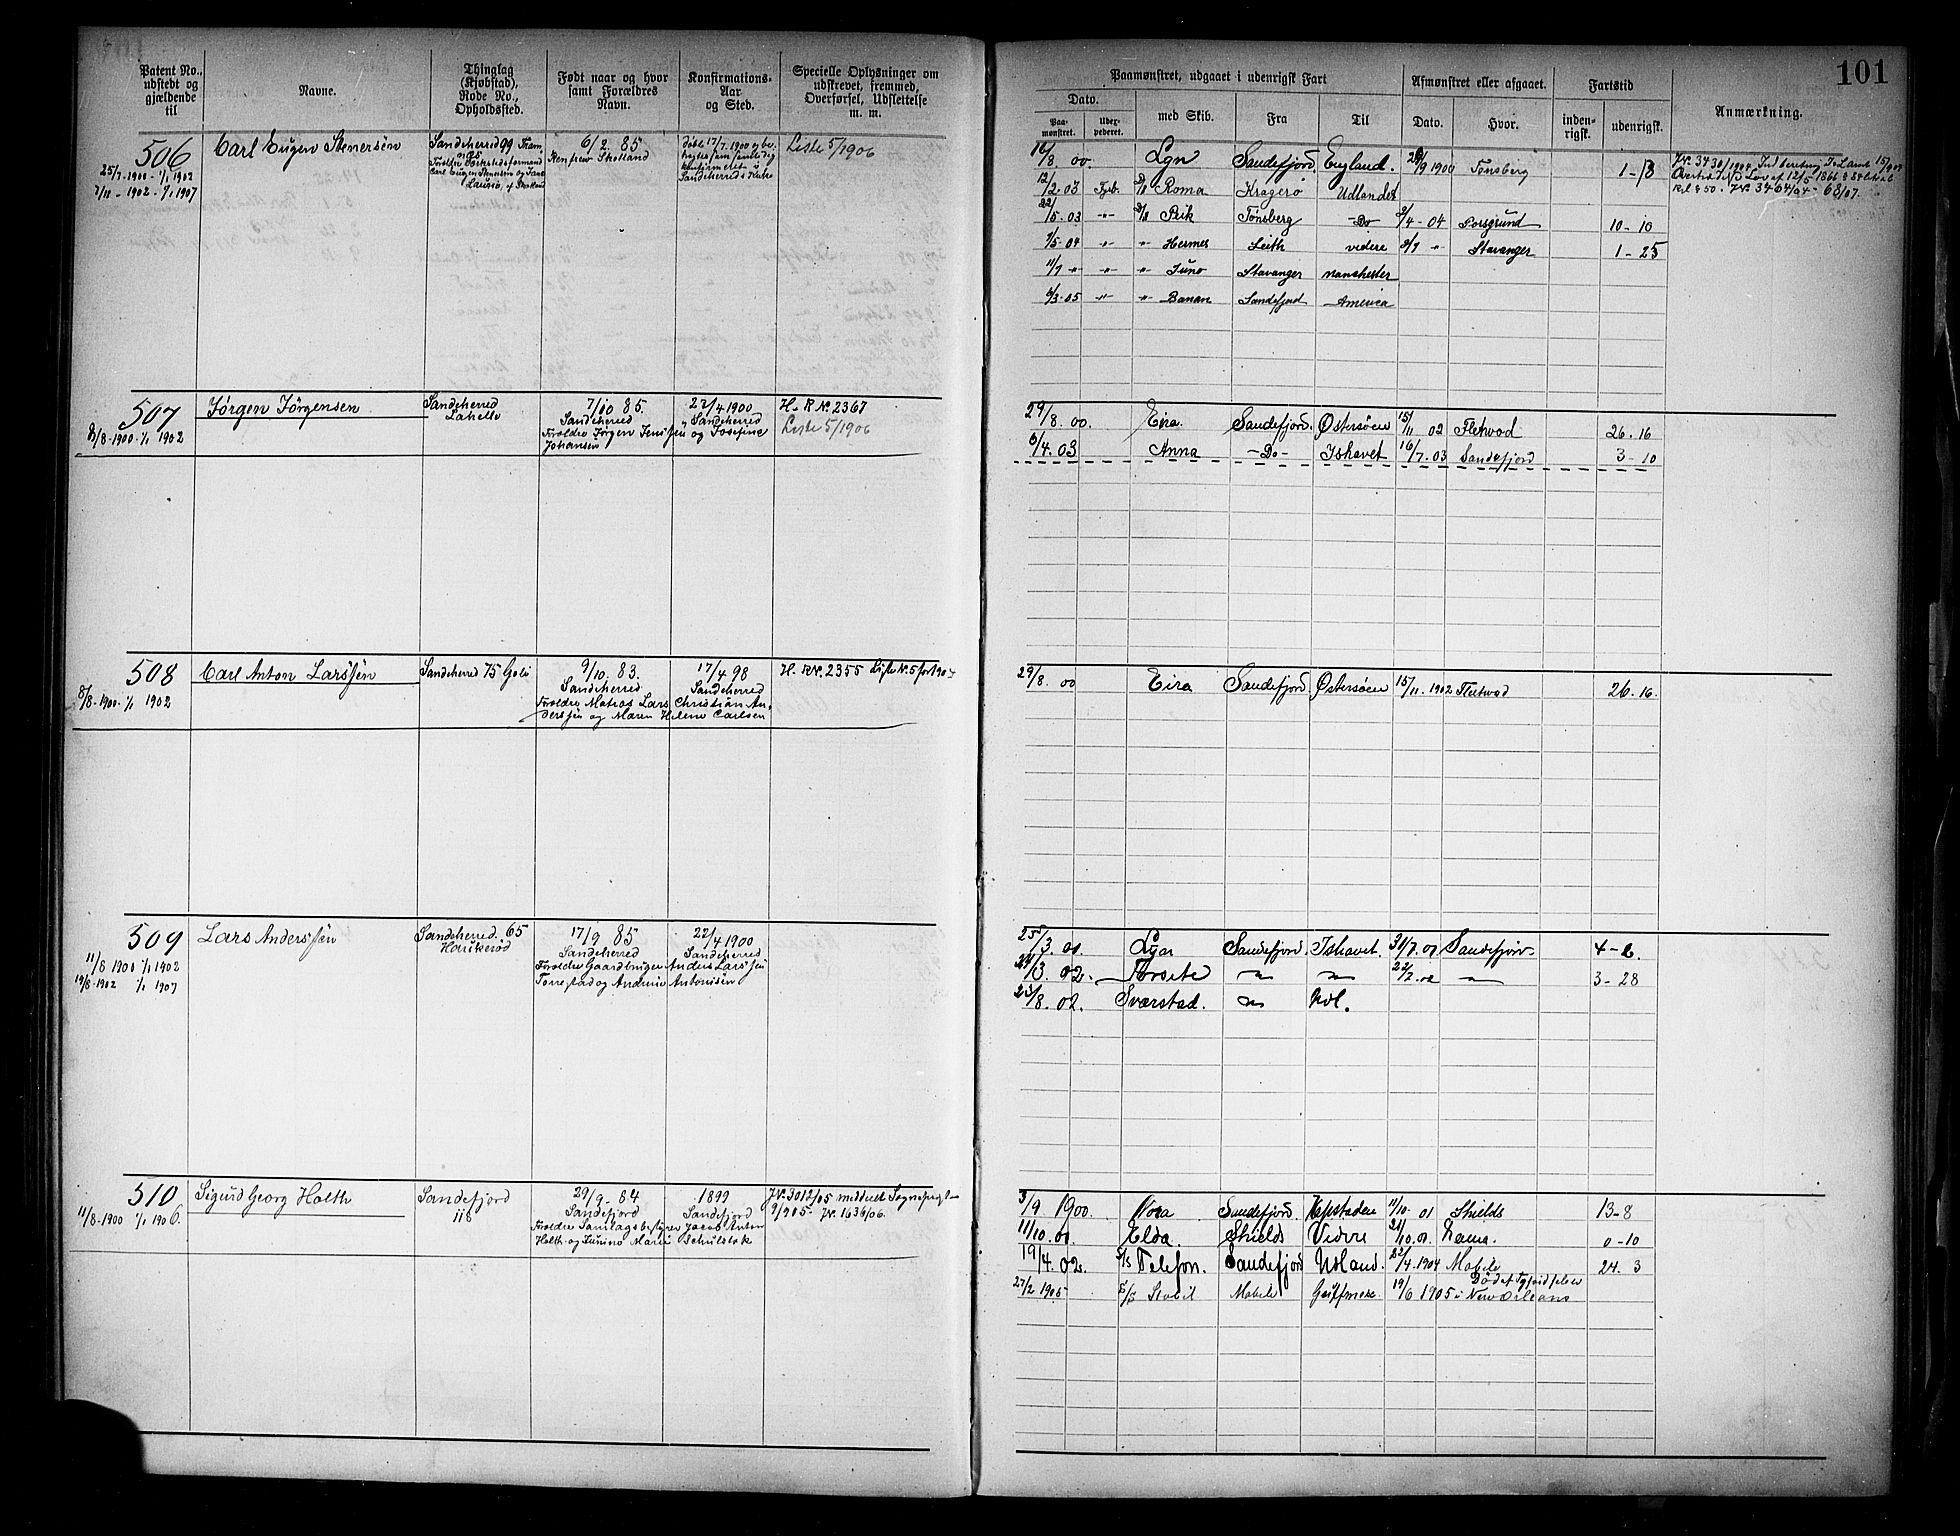 101
Patent No., udstedt og gjældende til
Navne.
Thinglag (Kjøbstad), Rode No., Opholdssted.
Født naar og hvor samt Forældres Navn.
Konfirmations-Aar og Sted.
Specielle Oplysninger om udskrevet, fremmed, Overførsel, Udslettelse m. m.
Paamønstret, udgaaet i udenrigsk Fart
Afmønstret eller afgaaet.
Fartstid
Anmærkning.
Dato.
med Skib.
Fra
Til
Dato.
Hvor.
inden-rigsk.
udenrigsk.
Paa-mønstret.
506
25/7-1900 - 1/1 1902
7/11-1902 - 1/1 1907
Carl Eugen Stenersen
Sandeherred 99 Framnæs
6/2. 85
Renfrew Skotland
døbt 17/7. 1900 og
Sandeherreds Kirke
Liste 5/1906
16/8 00. Lyn Sandefjord England. 1900 Tønsberg 1-18
12/2-03 Roma Kragerø Udlandet
22/5-03 -"- Brik Tønsberg -Do- 4-04 Porsgrund 10-10
5-04 -"- " Hermes Leith videre Stavanger 1-25
11/7 " -"- " Juno Stavanger Manchester
3-05 -"- " Banan Sandefjord America
507
8-1900 - 1/1 1902
Jørgen Jørgensen
Sandeherred
Lahelle
7/10 85.
Sandeherred
Forældre Jørgen Jenssen og Josefine
Johansen
22/4 1900
Sandeherred
H. R No. 2367
Liste 5/1906
29/8. 00. Eira. Sandefjord. Østersøen 15/11 02 Fletwod 26-16
6/4. 03 Anna -Do- Ishavet 16/7. 03 Sandefjord 3-10
508
8/8-1900 - 1/1 1902
Carl Anton Larssen
Sandeherred 75 Goli
9/10. 83.
Sandeherred
Forældre Matros Lars Christian An-
derssen og Maren Helene Carlsen
17/4 98
Sandeherred
H. R No. 2355 Liste No. 5 for 190
29/8. 00 Eira Sandefjord. Østersøen 15/11. 1902 Fletwod 26-16.
509
11/8 1900 1/1 1902
19/8-1902 1/1 1907
Lars Anderssen
Sandeherred. 65
Haukerød
17/9 85
Sandeherred
Forældre Gaardbruger Anders Larssen
og Andrine Antonisen
22/4 1900
Sandeherred
25/3. 01. Lyn Sandefjord Ishavet. 31/7. 01 Sandefjord 4-2.
/3. 02. Forsete " " 22/7. 02 " 3-28
23/8. 02. Sværstad. " Udl.
510
11/8-1900 1/1 1906.
Sigurd Georg Holth
Sandefjord
118
29/9-84
Sandefjord
Forældre Samlagsbestyrer Jacob Anton
Holth og Lunino Marie Schulstok
1899
Sandefjord
J.No. 3012/05 meddelt Sognepræst
9/905. J.No. 1636/06.
3/9 1900. Nora Sandefjord. Kapstaden 11/10. 01 Shields 13-8
11/10. 01. Elda. Shields Vidrre 21/10. 01. 0-10
19/4. 02. S/S Telefon. Sandefjord Udland. 22/4. 1904 Mobile 24. 3
27/2 1905 S/S Stabil Mobile 19/6 1905 i New Orleans